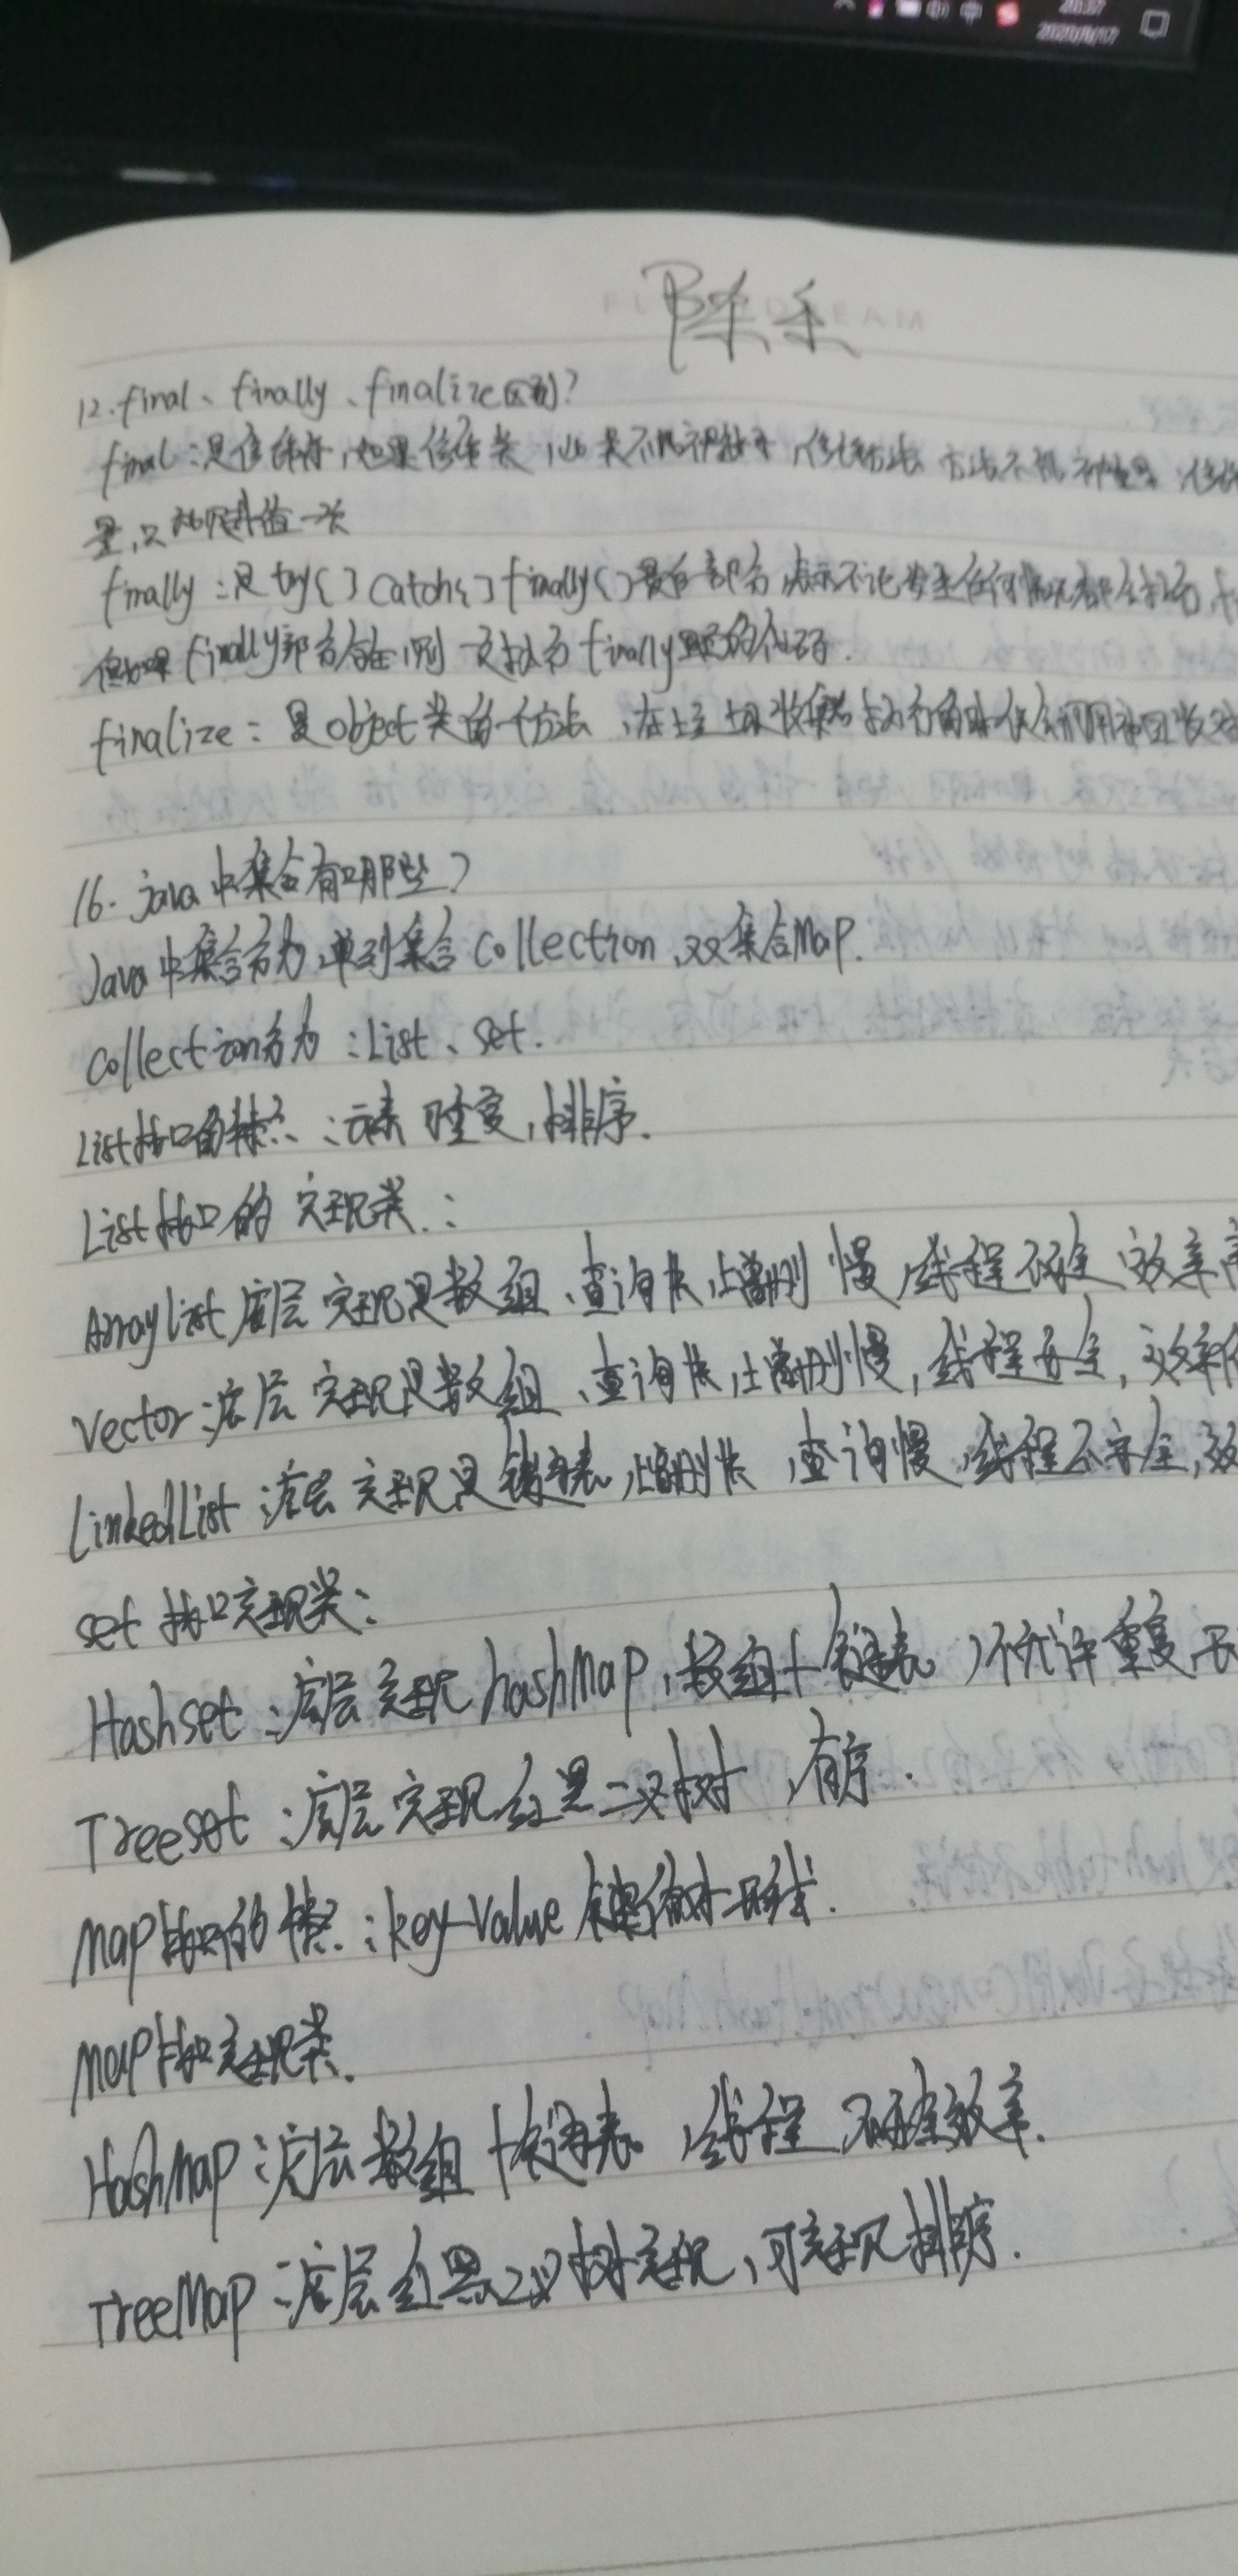 中
2020/8/17
陈
12.final、finally、finalize区别?
final:是修饰符,如果修饰类,此类不能被继承,修饰方法 方法不能被重写,修饰
量,只能赋值一次
finally:是try{}catch{}finally{}最后一部分,表示不论发生任何情况都会执行,
但如果finally部分存在,则一定执行finally里面的代码.
finalize:是object类的一个方法,在垃圾收集器执行的时候会调用被回收对
16.java中集合有哪些?
Java中集合分为单列集合collection,双集合Map.
collection分为:List、set.
List接口的特点:元素可重复,排序.
List接口的实现类:
ArrayList底层实现是数组、查询快,增删慢,线程不安全、效率高
vector:底层实现是数组、查询快,增删慢,线程安全,效率低
LinkedList:底层实现是链表,增删快,查询慢,线程不安全,效
set接口实现类:
Hashset:底层实现hashMap,数组+链表,不允许重复,
Treeset:底层实现红黑二叉树,有序.
map接口的特点:key-value键值对形式.
map接口实现类.
HashMap:底层数组+链表,线程不安全效率.
TreeMap:底层红黑二叉树实现,可实现排序.